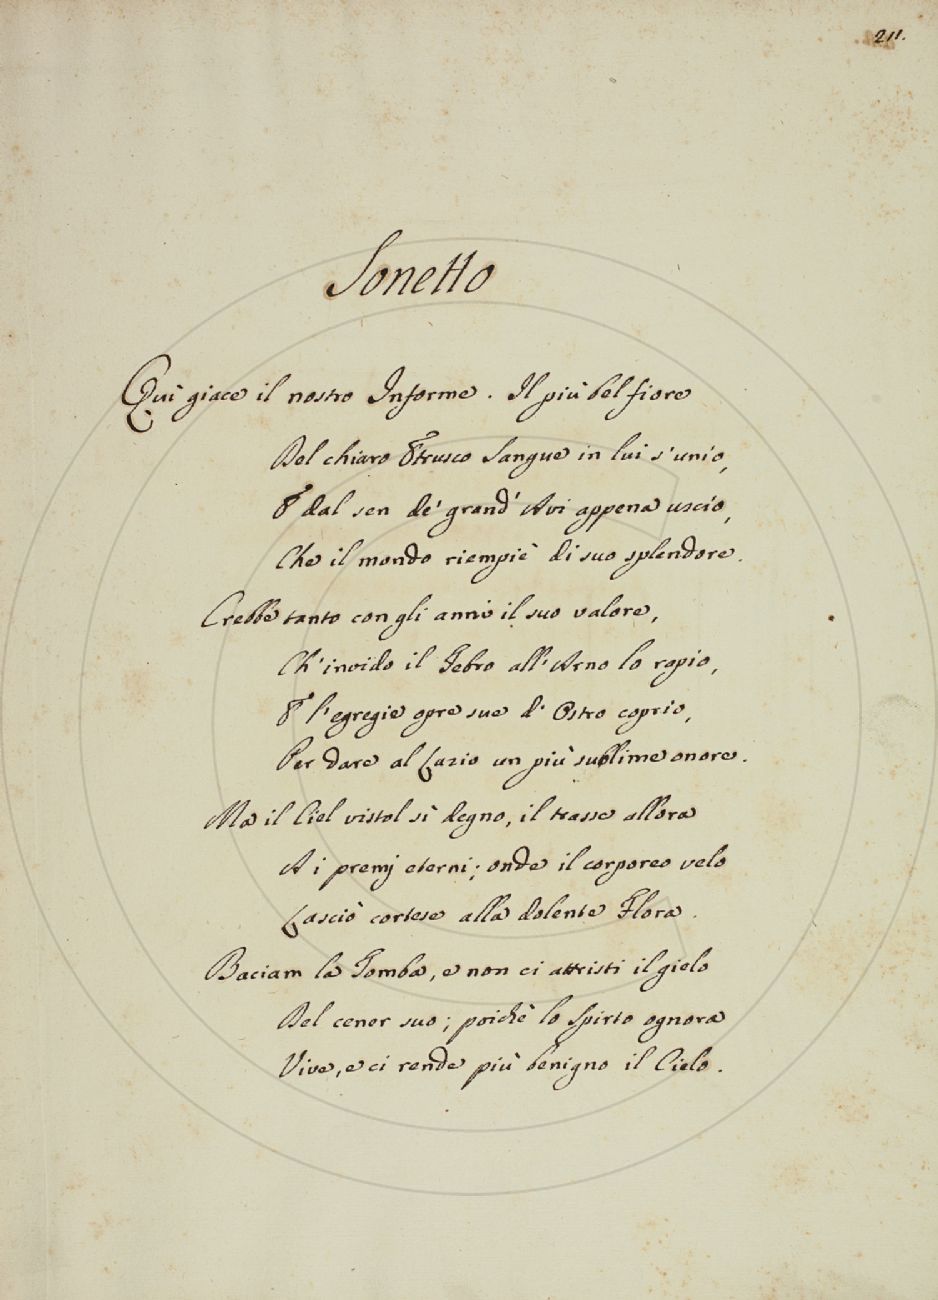 211.
Sonetto
Quì giace il nostro Informe. Il più bel fiore
Del chiaro Etrusco Sangue in lui s'unio,
E dal sen de' grand' Avi appena uscio,
Che il mondo riempiè di suo splendore.
Crebbe tanto con gli anni il suo valore,
Ch'invido il Tebro all'Arno lo rapio,
E l'egregie opre sue d'Ostro coprio,
Per dare al Lazio un più sublime onore.
Ma il Ciel vistol sì degno, il trasse allora
A i premj eterni; onde il corporeo velo
Lasciò cortese alla dolente Flora.
Baciam la Tomba, e non ci attristi il gielo
Del cener suo; poichè lo Spirto ognora
Vive, e ci rende più benigno il Cielo.